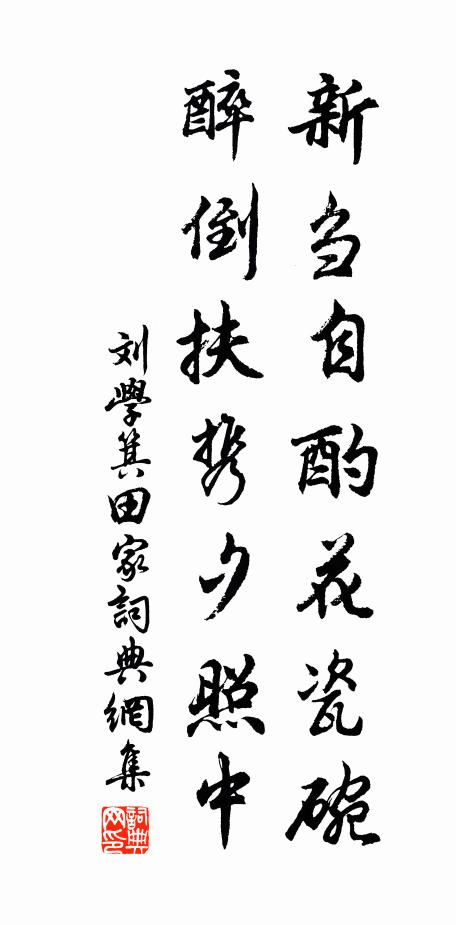 新刍自酌花瓷碗
醉倒扶携夕照中
刘學箕田家詞典網集
詞典网印